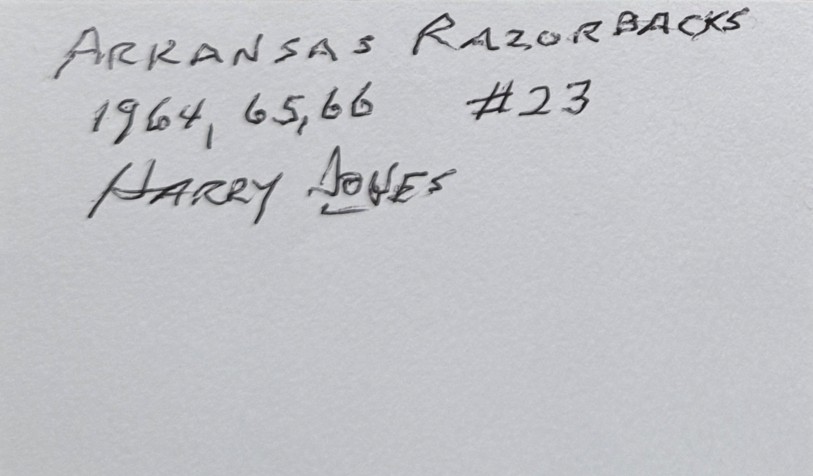 ARKANSAS RAZORBACKS
1964, 65, 66 #23
HARRY JONES